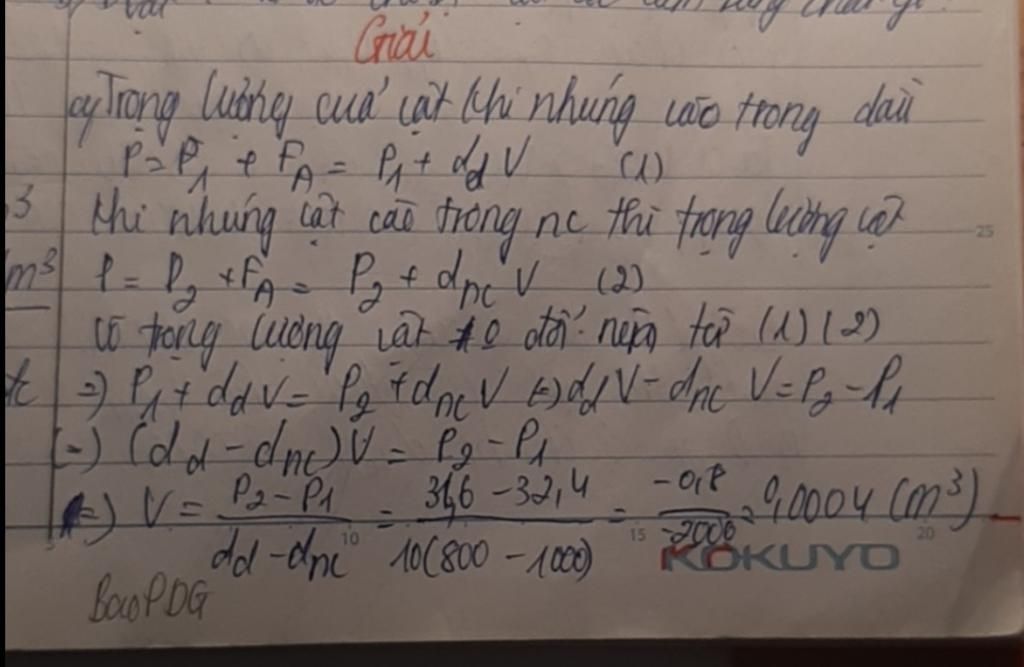 Giải
a, Trọng lượng của vật khi nhúng vào trong dầu
P = P₁ + F_A = P₁ + d_d V (1)
3 khi nhúng vật vào trong nc thì trọng lượng vật
m³ P = P₂ + F_A = P₂ + d_nc V (2)
Có trọng lượng vật ko đổi nên từ (1) (2)
t => P₁ + d_d V = P₂ + d_nc V (=) d_d V - d_nc V = P₂ - P₁
(=) (d_d - d_nc)V = P₂ - P₁
(=) V = (P₂ - P₁)/(d_d - d_nc) = (31,6 - 32,4)/(10(800 - 1000)) = (-0,8)/(-2000) = 0,0004 (m³)
KOKUYO
BaoPDG